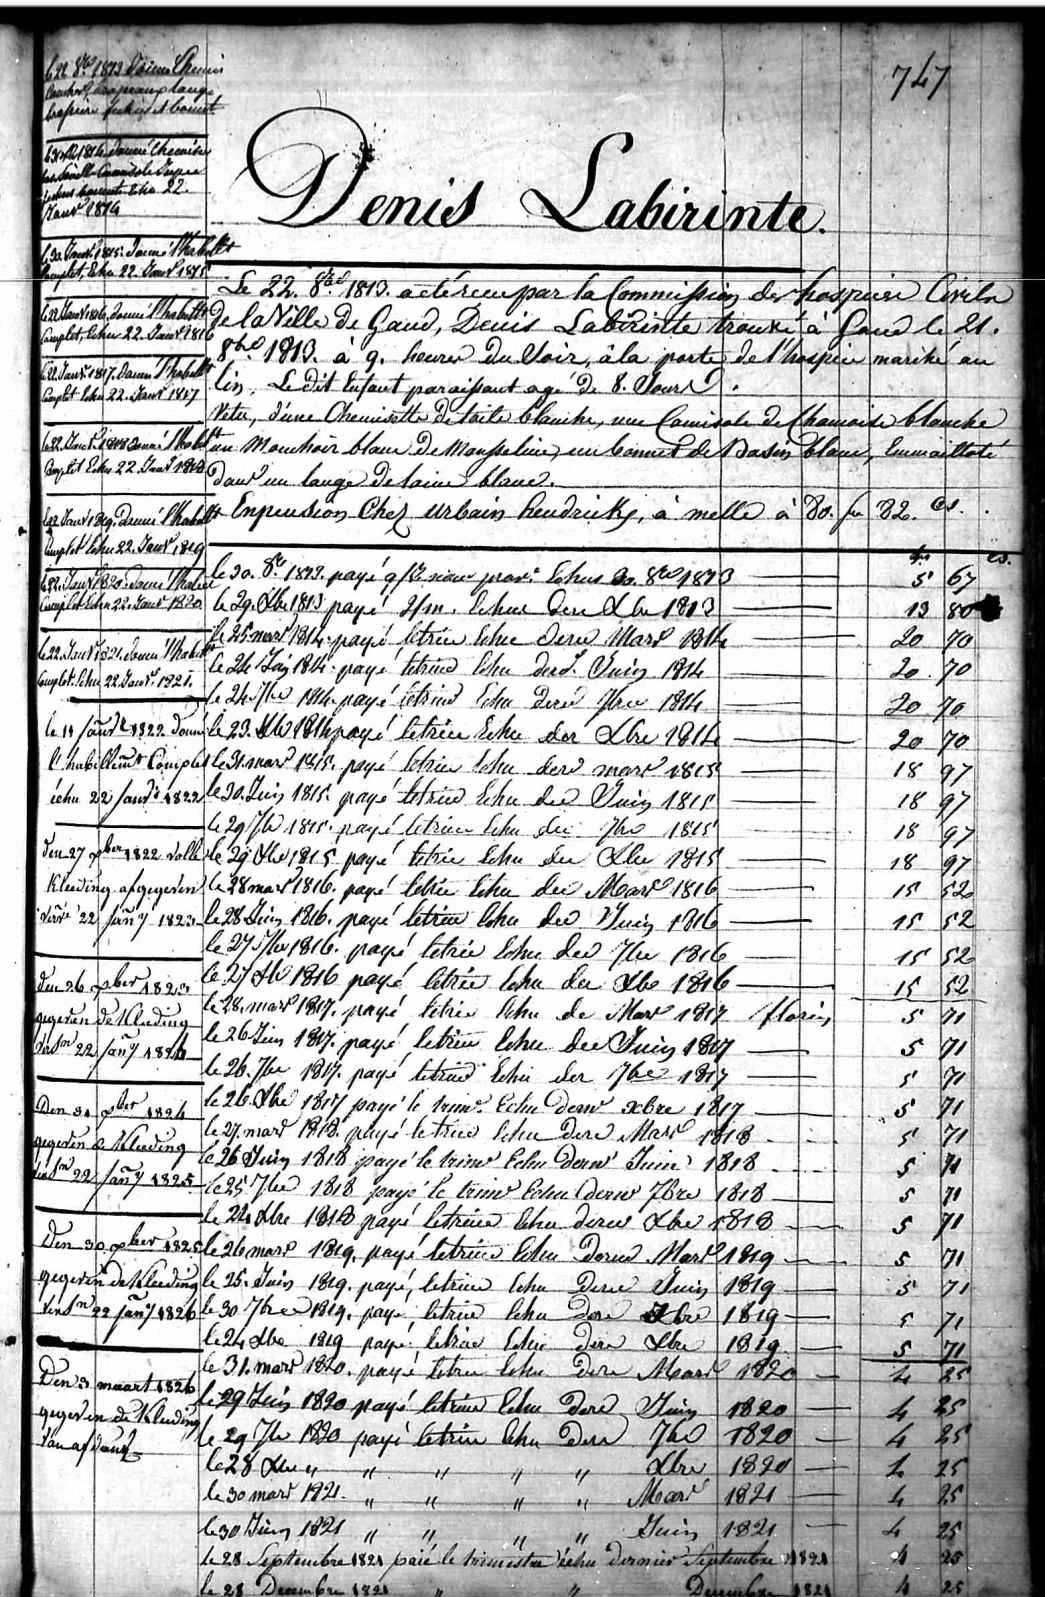 747
Denis Labirinte.
Le 22. 8bre 1813. a été recu par la Commission des hospices Civils
de la Ville de Gand, Denis Labirinte trouvé à Gand le 21.
8bre 1813. à 9. heures du Soir, à la porte de l'hospice
Le dit Enfant paraissant agé de 8. Jours.
Vetu, d'une Chemisette de toile blanche, une Camisole de Chamoise blanche
un Mouchoir blanc de Mousseline, un bonnet de Basin blanc, Emmailloté
dans un lange de laine blanc.
En pension Chez urbain hendrickx, à melle à 80. fr 82. cs.
fr. cs.
le 30. 8bre 1813. payé Echus 30. 8bre 1813 5 67
le 29. Xbre 1813 payé 2/m. Echus dere Xbre 1813 13 80
le 25 mars 1814. payé letrim Echu dere Mars 1814 20 70
le 24 Juin 1814. payé letrim Echu dere Juin 1814 20 70
le 24. 7bre 1814. payé letrim Echu dere 7bre 1814 20 70
le 23. Xbre 1814 payé letrim Echu der Xbre 1814 20 70
le 31 mars 1815. payé letrim Echu dere mars 1815 18 97
le 30. Juin 1815. payé letrim Echu der Juin 1815 18 97
le 29 7bre 1815. payé letrim Echu der 7bre 1815 18 97
le 29 Xbre 1815. payé letrim Echu der Xbre 1815 18 97
le 28 mars 1816. payé letrim Echu der Mars 1816 15 52
le 28 Juin 1816. payé letrim Echu der Juin 1816 15 52
le 27 7bre 1816. payé letrim Echu der 7bre 1816 15 52
le 27 Xbre 1816 payé letrim Echu der Xbre 1816 15 52
le 28. mars 1817. payé letrim Echu de Mars 1817 florins 5 71
le 26 Juin 1817. payé letrim Echu der Juin 1817 5 71
le 26. 7bre 1817. payé letrim Echu der 7bre 1817 5 71
le 26. Xbre 1817 payé le trimr. Echu dernr xbre 1817 5 71
le 27. mars 1818. payé letrim Echu dere Mars 1818 5 71
le 26 Juin 1818 payé le trimr Echu dernr Juin 1818 5 71
le 25 7bre 1818 payé le trimr Echu dernr 7bre 1818 5 71
le 24 Xbre 1818 payé letrim Echu dere Xbre 1818 5 71
le 26 mars 1819. payé letrim Echu dere Mars 1819 5 71
le 25. Juin 1819. payé, letrim Echu dere Juin 1819 5 71
le 30 7bre 1819. payé, letrim Echu dere 1819 5 71
le 24 Xbre 1819 payé letrim Echu dere Xbre 1819 5 71
le 31. mars 1820. payé letrim Echu dere Mars 1820 4 25
le 29 Juin 1820 payé letrim Echu dere Juin 1820 4 25
le 29 7bre 1820 payé letrim Echu dere 7bre 1820 4 25
le 28 Xbre " " " " " Xbre 1820 4 25
le 30 mars 1821. " " " " Mars 1821 4 25
le 30 Juin 1821 " " " " Juin 1821 4 25
le 28 Septembre 1821 paié le trimestre échu dernier Septembre 1821 4 25
le 28 Decembre 1821 " " Decembre 1821 4 25
le 22 8bre 1813 Donné Chemise
Janvr 1814
le 20. Janvr. 1815. Donné l'habillt
Complet, Echu 22. Janvr 1815
le 22 Janvr 1816, donné l'habillt
Complet, Echu 22. Janvr 1816
le 22. Janvr. 1817. Donné l'habillt
Complet Echu 22. Janvr 1817
le 22. Janvr 1818 donné l'habillt
Complet Echu 22 Janvr 1818
le 22 Janvr 1819. Donné l'habillt
Complet Echu 22. Janvr. 1819
le 22. Janvr 1820. Donné l'habillt
Complet Echu 22. Janvr 1820
le 22. Janvr 1821. Donné l'habillt
Complet. Echu 22 Janvr. 1821.
le 11 Janvr 1822 donné
l'habillemt Complet
échu 22 Janvr 1822
den 27 xber 1822 volle
Kleeding afgegeven
22 Janry 1823
den 26 xber 1823
gegeven de Kleeding
22 Janry 1824
Den 31 xber 1824
gegeven de Kleeding
22 Janry 1825
Den 30 xber 1825
gegeven de Kleeding
22 Janry 1826
Den 3 maart 1826
gegeven de Kleeding